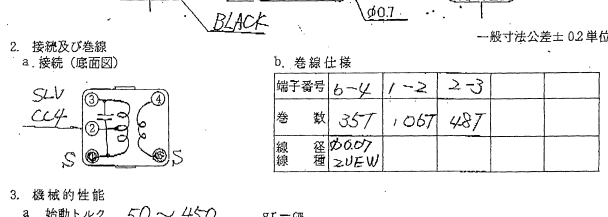 BLACK
φ0.7
一般寸法公差±0.2単位
2. 接続及び巻線
a. 接続(底面図)
SLV
CC4
③ ④
②
S S
b. 巻線仕様
端子番号 6-4 1-2 2-3
巻数 35T 106T 48T
線径 φ0.07
線種 2UEW
3. 機械的性能
a 始動トルク 50~450 gr-cm